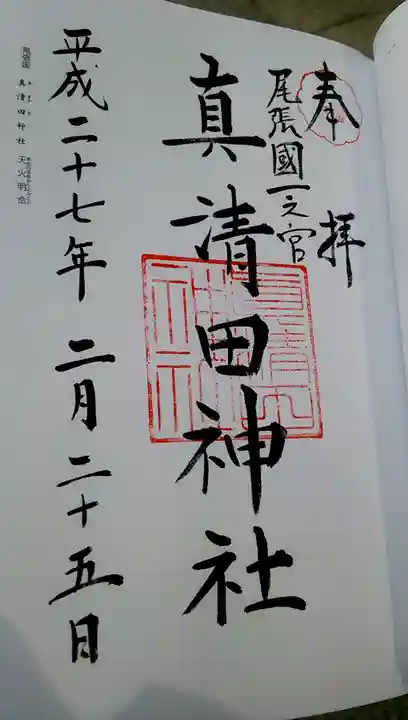 奉拝
尾張國一之宮
真清田神社
平成二十七年 二月二十五日
尾張国
真清田神社 天火明命